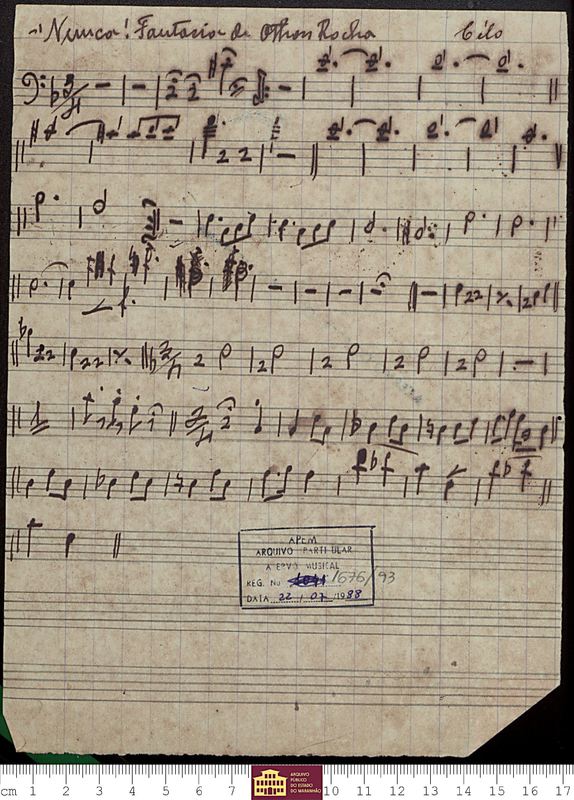 Nunca! Fantasia de Othon Rocha Célo
3/4
2/4
APEM
ARQUIVO PARTICULAR
ACERVO MUSICAL
REG. No 1676/93
DATA 22/07/1988
cm 1 2 3 4 5 6 7 10 11 12 13 14 15 16 17
ARQUIVO
PÚBLICO
DO ESTADO
DO MARANHÃO